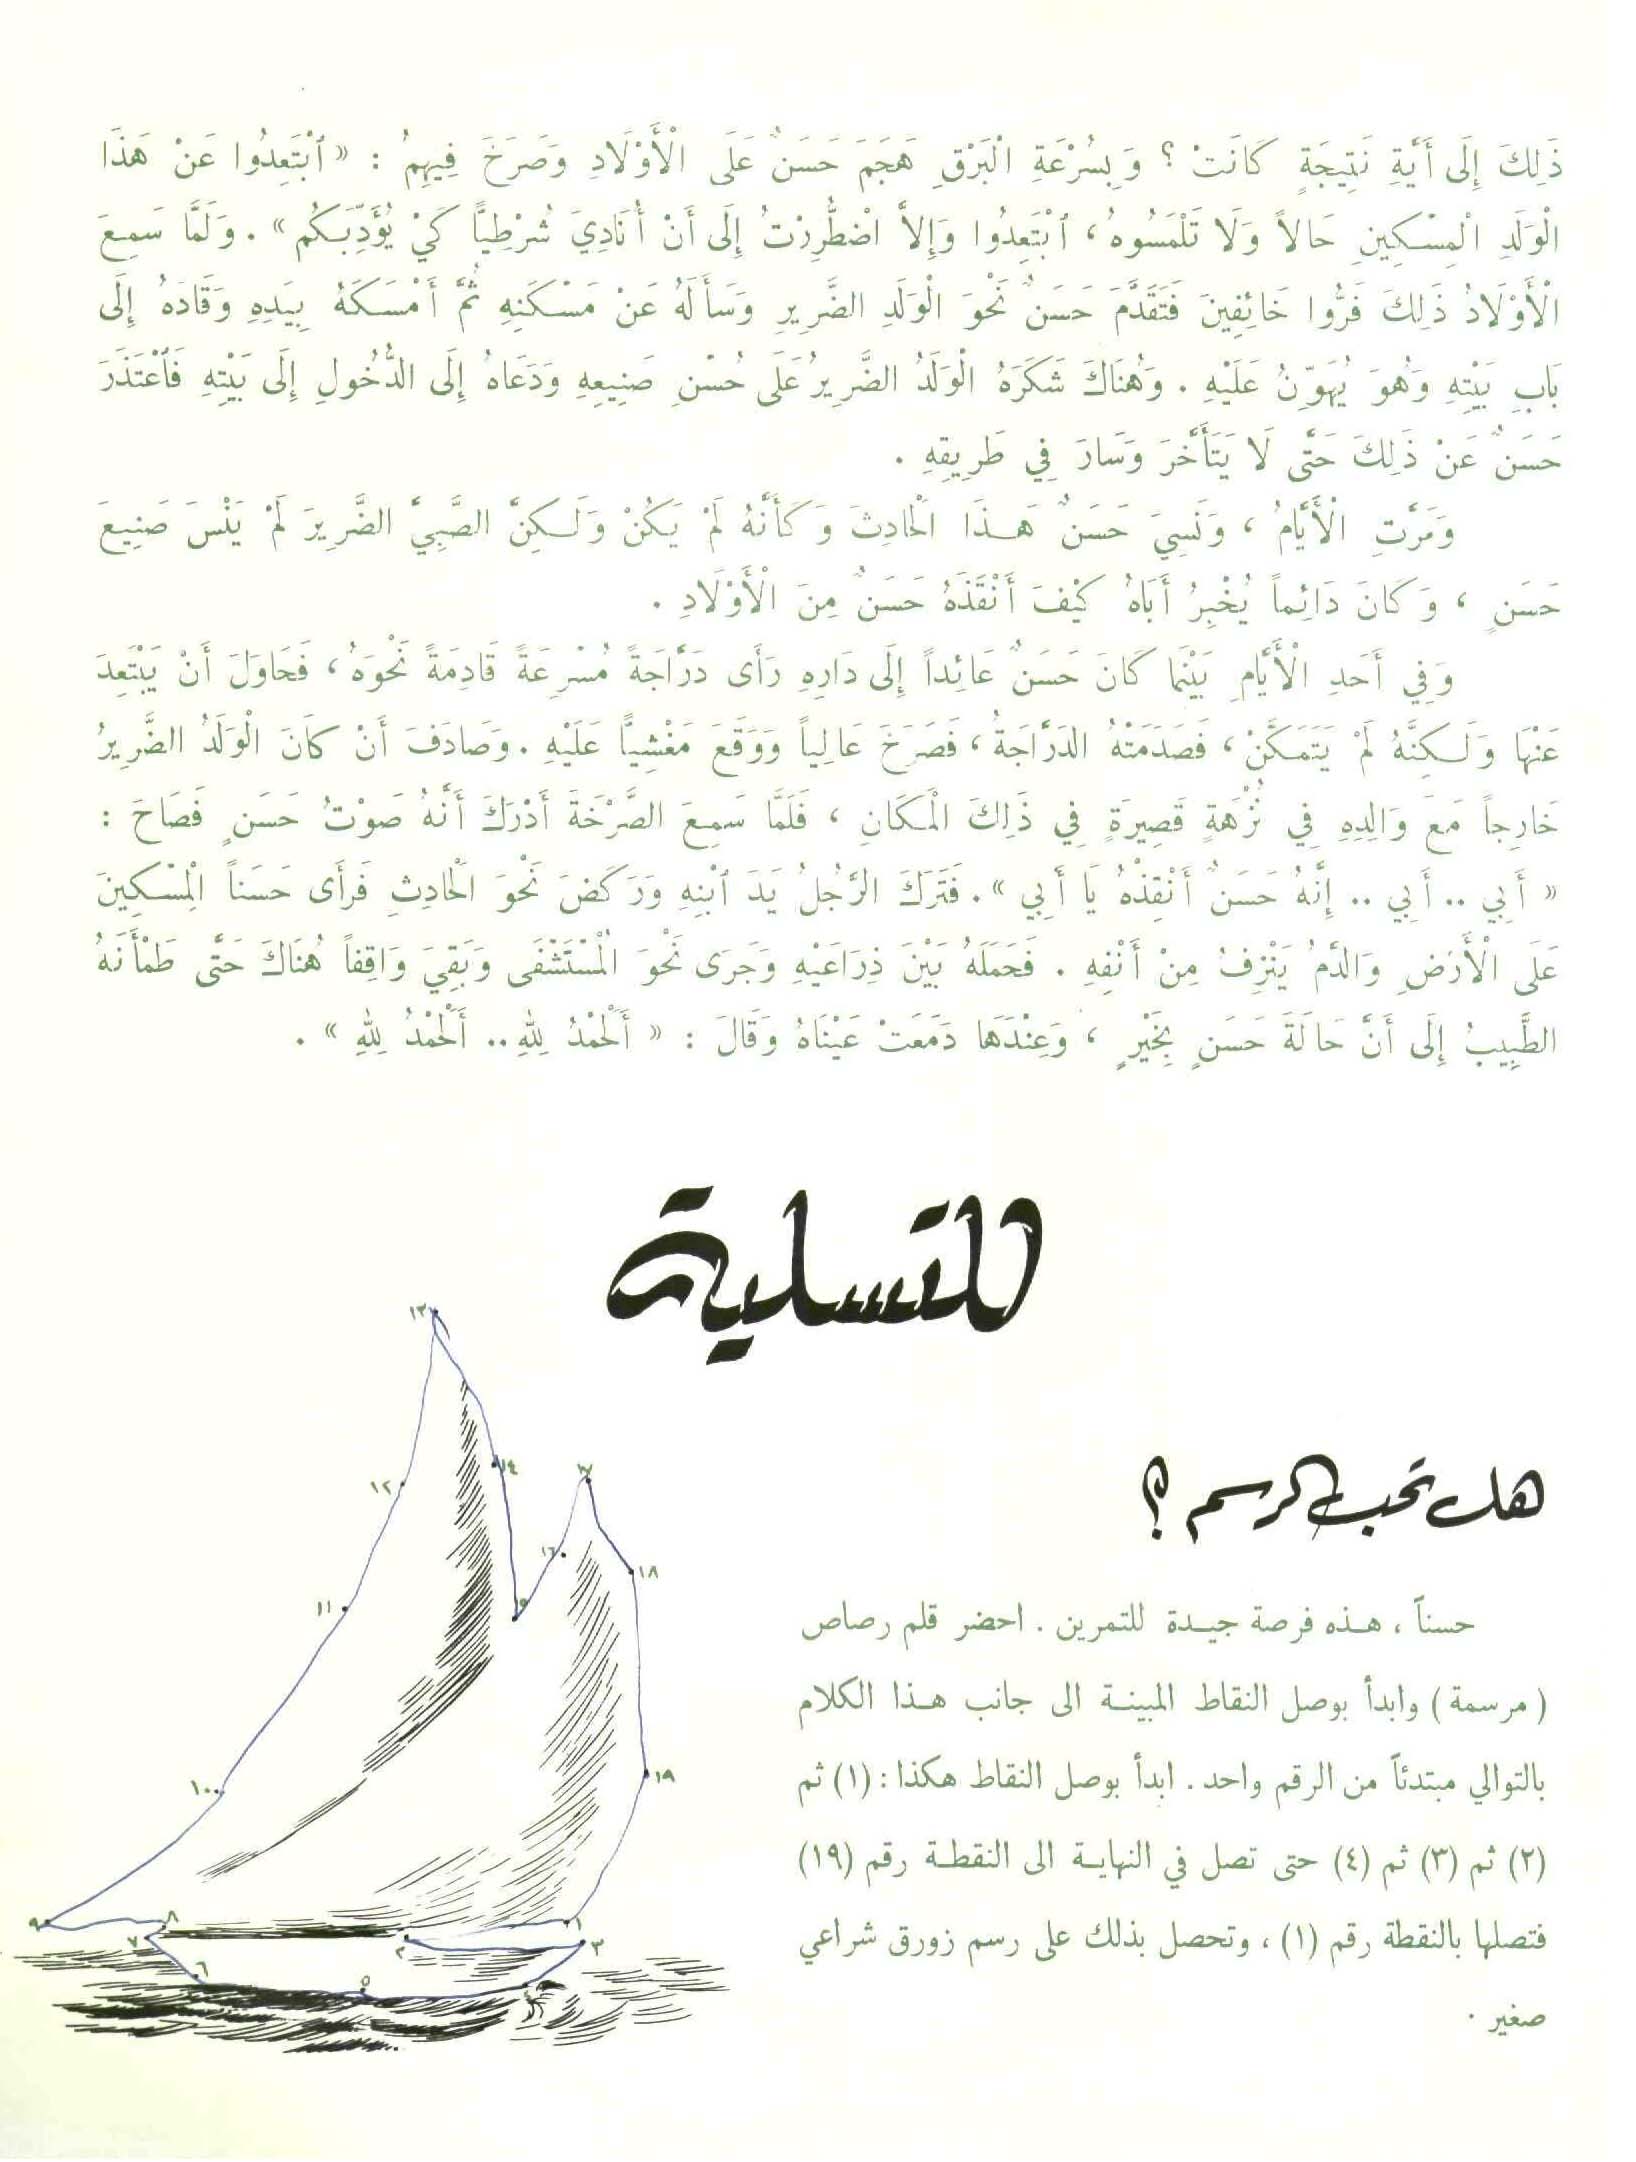 ذَلِكَ إِلَى أَيَّةِ نَتِيجَةٍ كَانَتْ ؟ وَبِسُرْعَةِ الْبَرْقِ هَجَمَ حَسَنٌ عَلَى الْأَوْلَادِ وَصَرَخَ فِيهِمُ : « ٱبْتَعِدُوا عَنْ هَذَا
الْوَلَدِ الْمِسْكِينِ حَالاً وَلَا تَلْمَسُوهُ ، ٱبْتَعِدُوا وَإِلاَّ اضْطُرِرْتُ إِلَى أَنْ أُنَادِيَ شُرْطِيًّا كَيْ يُؤَدِّبَكُم » . وَلَمَّا سَمِعَ
الْأَوْلَادُ ذَلِكَ فَرُّوا خَائِفِينَ فَتَقَدَّمَ حَسَنٌ نَحْوَ الْوَلَدِ الضَّرِيرِ وَسَأَلَهُ عَنْ مَسْكَنِهِ ثُمَّ أَمْسَكَهُ بِيَدِهِ وَقَادَهُ إِلَى
بَابِ بَيْتِهِ وَهُوَ يُهَوِّنُ عَلَيْهِ . وَهُنَاكَ شَكَرَهُ الْوَلَدُ الضَّرِيرُ عَلَى حُسْنِ صَنِيعِهِ وَدَعَاهُ إِلَى الدُّخُولِ إِلَى بَيْتِهِ فَٱعْتَذَرَ
حَسَنٌ عَنْ ذَلِكَ حَتَّى لَا يَتَأَخَّرَ وَسَارَ فِي طَرِيقِهِ .
وَمَرَّتِ الْأَيَّامُ ، وَنَسِيَ حَسَنٌ هَـذَا الْحَادِثَ وَكَأَنَّهُ لَمْ يَكُنْ وَلَـكِنَّ الصَّبِيَّ الضَّرِيرَ لَمْ يَنْسَ صَنِيعَ
حَسَنٍ ، وَكَانَ دَائِماً يُخْبِرُ أَبَاهُ كَيْفَ أَنْقَذَهُ حَسَنٌ مِنَ الْأَوْلَادِ .
وَفِي أَحَدِ الْأَيَّامِ بَيْنَمَا كَانَ حَسَنٌ عَائِداً إِلَى دَارِهِ رَأَى دَرَّاجَةً مُسْرِعَةً قَادِمَةً نَحْوَهُ ، فَحَاوَلَ أَنْ يَبْتَعِدَ
عَنْهَا وَلَـكِنَّهُ لَمْ يَتَمَكَّنْ ، فَصَدَمَتْهُ الدَرَّاجَةُ ، فَصَرَخَ عَالِياً وَوَقَعَ مَغْشِيًّا عَلَيْهِ . وَصَادَفَ أَنْ كَانَ الْوَلَدُ الضَّرِيرُ
خَارِجاً مَعَ وَالِدِهِ فِي نُزْهَةٍ قَصِيرَةٍ فِي ذَلِكَ الْمَكَانِ ، فَلَمَّا سَمِعَ الصَّرْخَةَ أَدْرَكَ أَنَّهُ صَوْتُ حَسَنٍ فَصَاحَ :
« أَبِي .. أَبِي .. إِنَّهُ حَسَنٌ أَنْقِذْهُ يَا أَبِي » . فَتَرَكَ الرَّجُلُ يَدَ ٱبْنِهِ وَرَكَضَ نَحْوَ الْحَادِثِ فَرَأَى حَسَناً الْمِسْكِينَ
عَلَى الْأَرْضِ وَالدَّمُ يَنْزِفُ مِنْ أَنْفِهِ . فَحَمَلَهُ بَيْنَ ذِرَاعَيْهِ وَجَرَى نَحْوَ الْمُسْتَشْفَى وَبَقِيَ وَاقِفاً هُنَاكَ حَتَّى طَمْأَنَهُ
الطَّبِيبُ إِلَى أَنَّ حَالَةَ حَسَنٍ بِخَيْرٍ ، وَعِنْدَهَا دَمَعَتْ عَيْنَاهُ وَقَالَ : « أَلْحَمْدُ لِلهِ .. أَلْحَمْدُ لِلهِ » .
للتسلية
هل تحب الرسم ؟
حسناً ، هـذه فرصة جيـدة للتمرين . احضر قلم رصاص
( مرسمة ) وابدأ بوصل النقاط المبينـة الى جانب هـذا الكلام
بالتوالي مبتدئاً من الرقم واحد . ابدأ بوصل النقاط هكذا : (١) ثم
(٢) ثم (٣) ثم (٤) حتى تصل في النهايـة الى النقطـة رقم (١٩)
فتصلها بالنقطة رقم (١) ، وتحصل بذلك على رسم زورق شراعي
صغير .
١٣
١٤
١٧
١٢
١٦
١٨
١٥
١١
١٩
١٠
٩
٨
١
٧
٢
٣
٦
٥